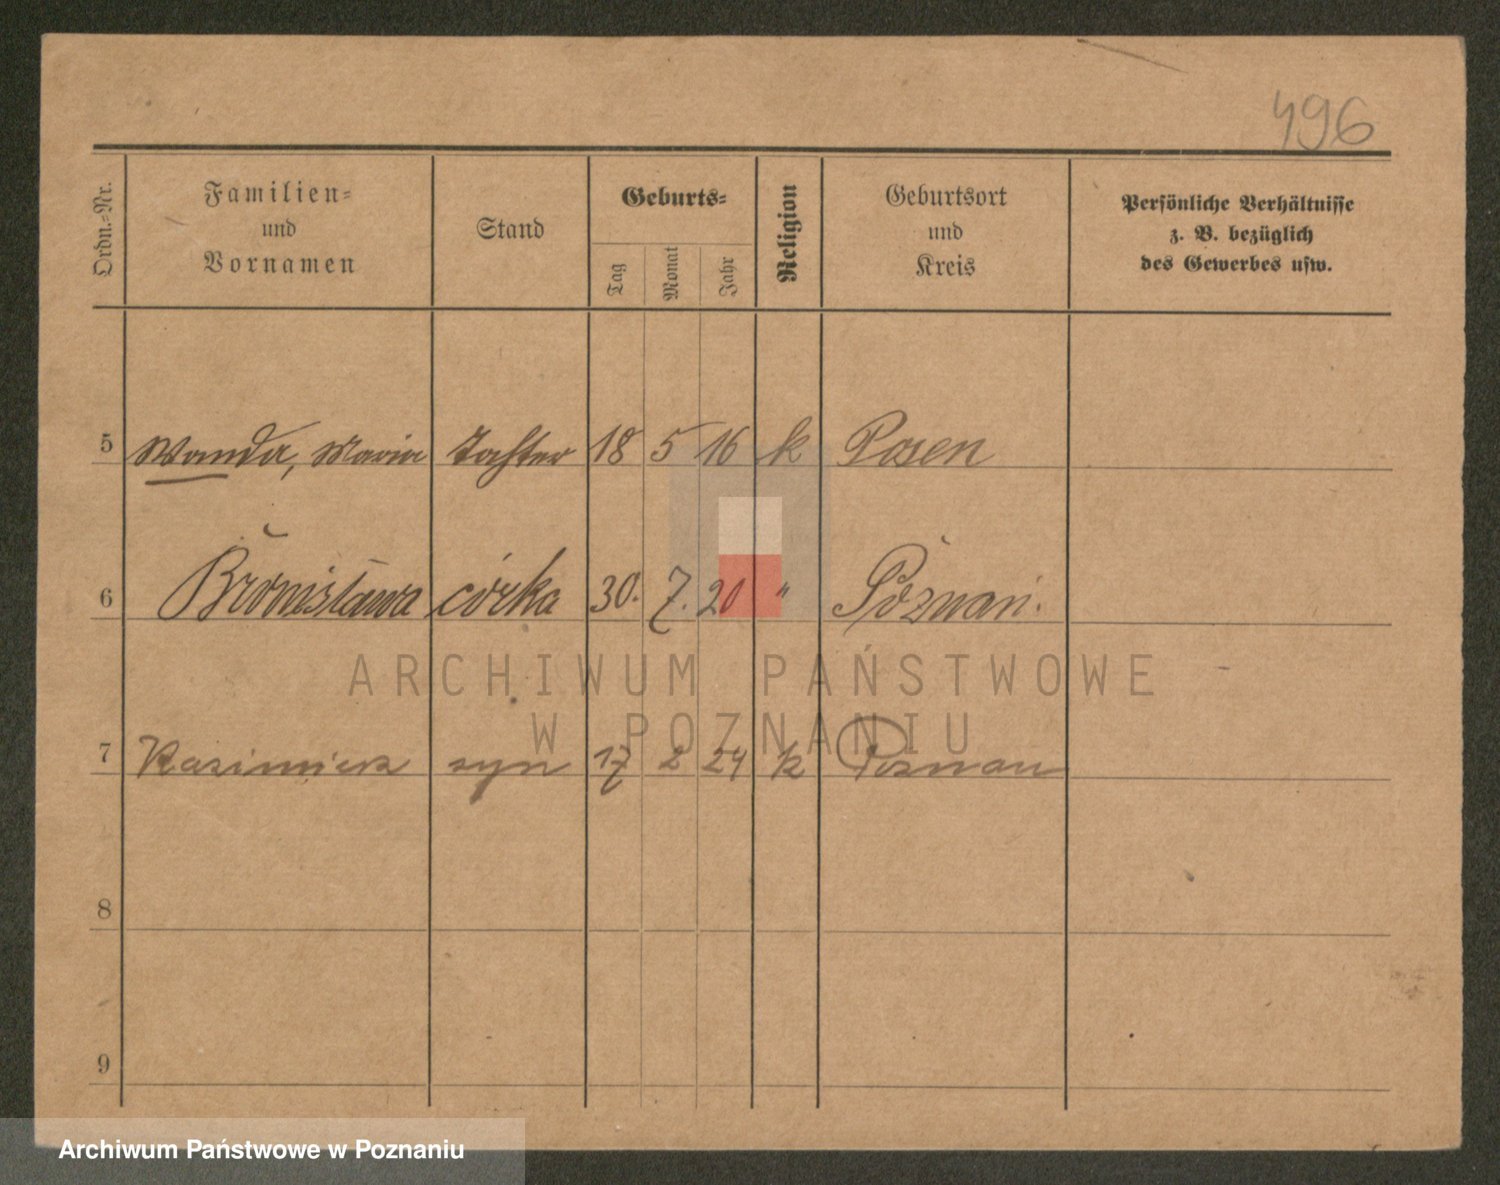 496
Ordn.-Nr.
Familien-
und
Vornamen
Stand
Geburts-
Tag
Monat
Jahr
Religion
Geburtsort
und
Kreis
Persönliche Verhältnisse
z. B. bezüglich
des Gewerbes usw.
5 Wanda, Maria Tochter 18 5 16 k Posen
6 Bronisława córka 30. 7. 20 " Poznań.
ARCHIWUM PAŃSTWOWE
W POZNANIU
7 Kazimierz syn 17 2 24 k Poznan
8
9
Archiwum Państwowe w Poznaniu